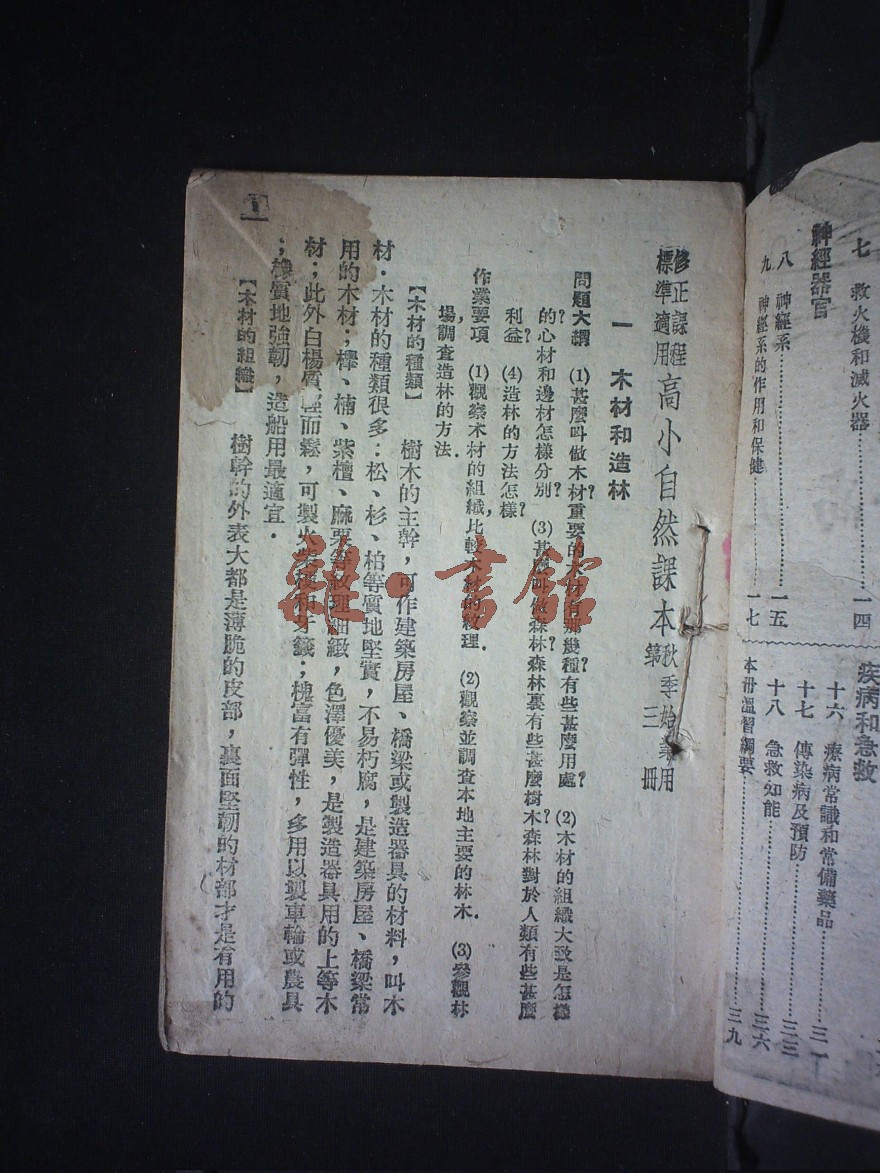 七 救火機和滅火器……一四
神經器官
八 神經系……一五
九 神經系的作用和保健……一七
疾病和急救
十六 療病常識和常備藥品……三一
十七 傳染病及預防……三三
十八 急救知能……三六
本冊溫習綱要……三九
修正課程
標準適用
高小自然課本
秋季始業用
第三冊
一 木材和造林
問題大綱 (1)甚麼叫做木材?重要的木材有那幾種?有些甚麼用處? (2)木材的組織大致是怎樣
?的心材和邊材怎樣分別? (3)甚麼叫做森林?森林裏有些甚麼樹木?森林對於人類有些甚麼
利益? (4)造林的方法怎樣?
作業要項 (1)觀察木材的組織,比較木材的紋理. (2)觀察並調查本地主要的林木. (3)參觀林
場,調查造林的方法.
【木材的種類】 樹木的主幹,可作建築房屋、橋梁或製造器具的材料,叫木
材.木材的種類很多:松、杉、柏等質地堅實,不易朽腐,是建築房屋、橋梁常
用的木材;櫸、楠、紫檀、麻栗等紋理細緻,色澤優美,是製造器具用的上等木
材;此外白楊質輕而鬆,可製火柴梗和牙籤;槐富有彈性,多用以製車輪或農具
;橡質地強韌,造船用最適宜.
【木材的組織】 樹幹的外表大都是薄脆的皮部,裏面堅韌的材部才是有用的
1
雜·書館